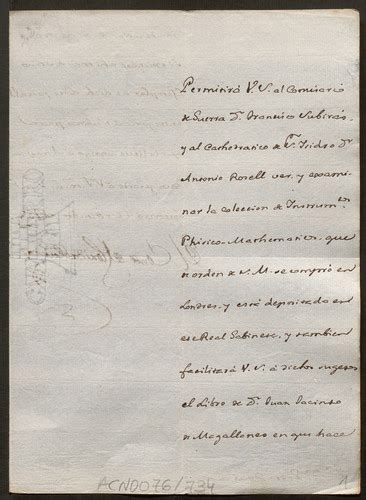 Permitirá V.S. al Comisario
de Guerra Dn. Francisco Subirás,
y al Cathedratico de Sn. Isidro Dn.
Antonio Rosell ver, y exsami-
nar la coleccion de Instrum.tos
Phisico-Mathematicos, que
de orden de S. M. se compró en
Londres, y está depositada en
ese Real Gabinete, y tambien
facilitará V. S. á dichos sugetos
el Libro de Dn. Juan Jacinto
de Magallanes en que hace
ACN0076/734
1